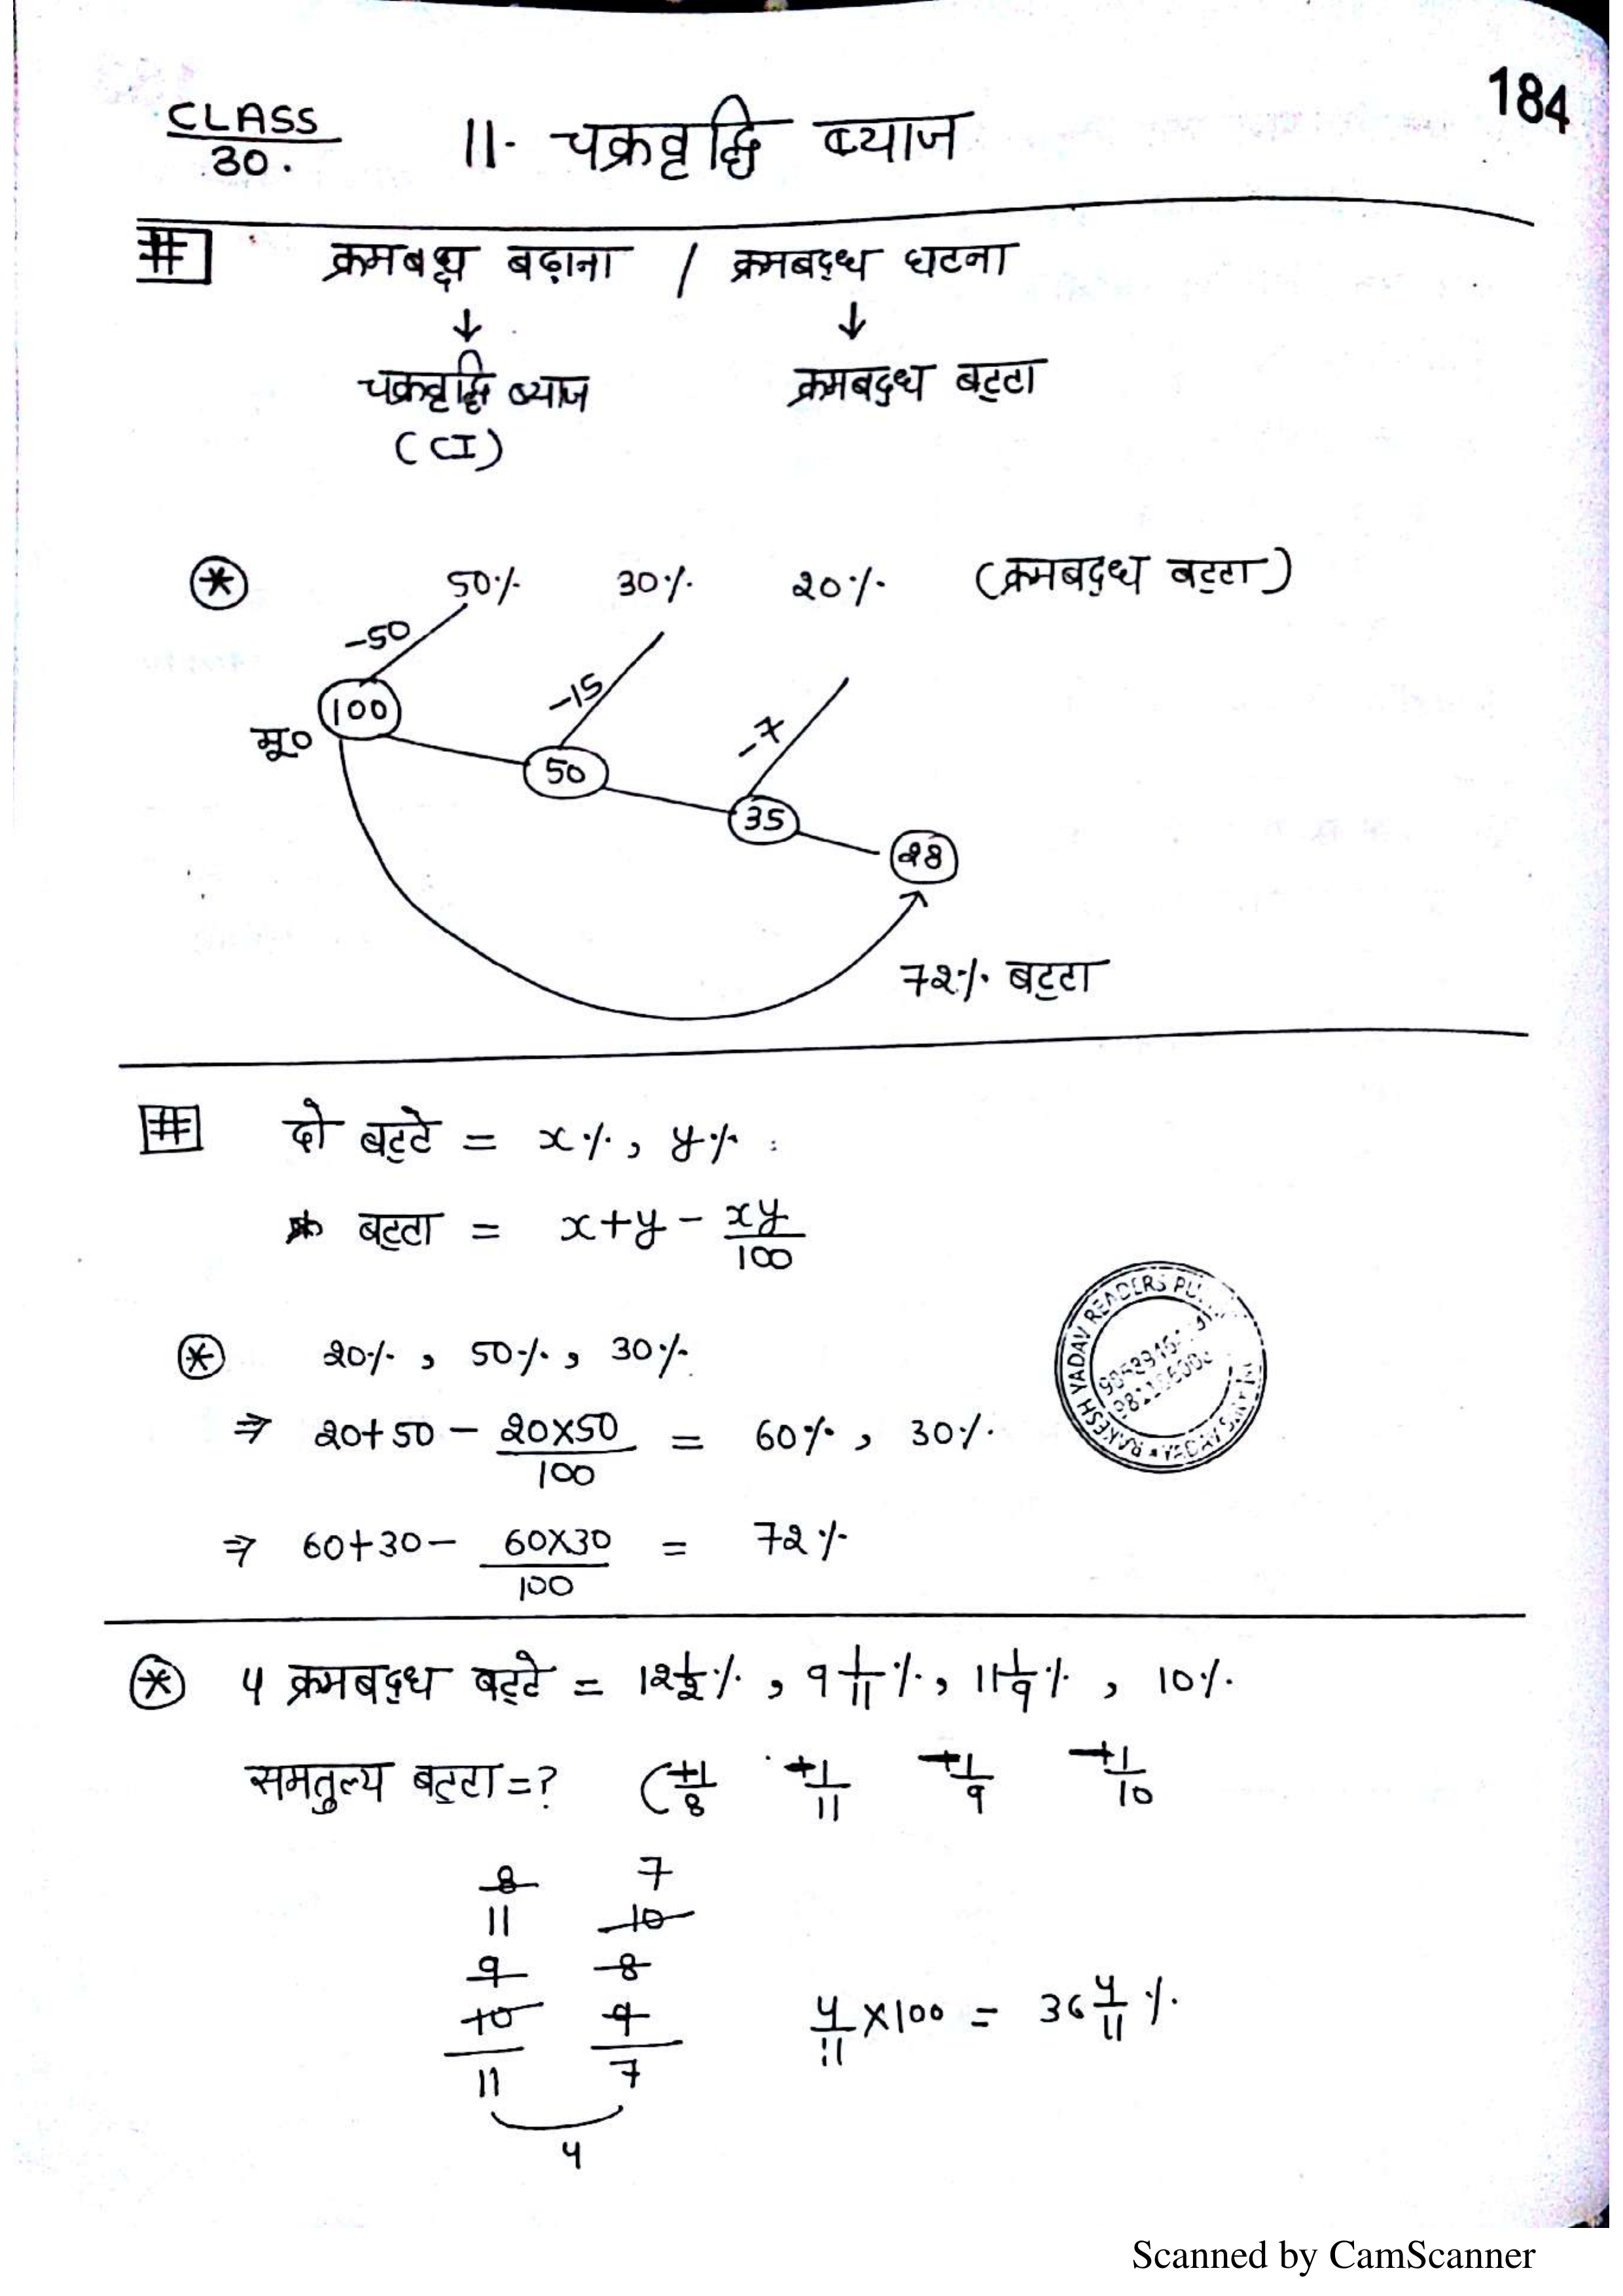 184
CLASS
30.
11. चक्रवृद्धि ब्याज
# क्रमबद्ध बढ़ाना / क्रमबद्ध घटना
↓ ↓
चक्रवृद्धि ब्याज क्रमबद्ध बट्टा
(CI)
* 50% 30% 20% (क्रमबद्ध बट्टा)
-50
-15
-7
100
मू०
50
35
28
72% बट्टा
# दो बट्टे = x%, y%
* बट्टा = x+y - xy/100
* 20%, 50%, 30%
⇒ 20+50 - 20×50/100 = 60%, 30%
⇒ 60+30 - 60×30/100 = 72%
* 4 क्रमबद्ध बट्टे = 12 1/2%, 9 1/11%, 11 1/9%, 10%
समतुल्य बट्टा=? (+1/8 +1/11 +1/9 +1/10
8 7
11 10
9 8
10 9
11 7
4
4/11 ×100 = 36 4/11 %
RAKESH YADAV READERS
Scanned by CamScanner